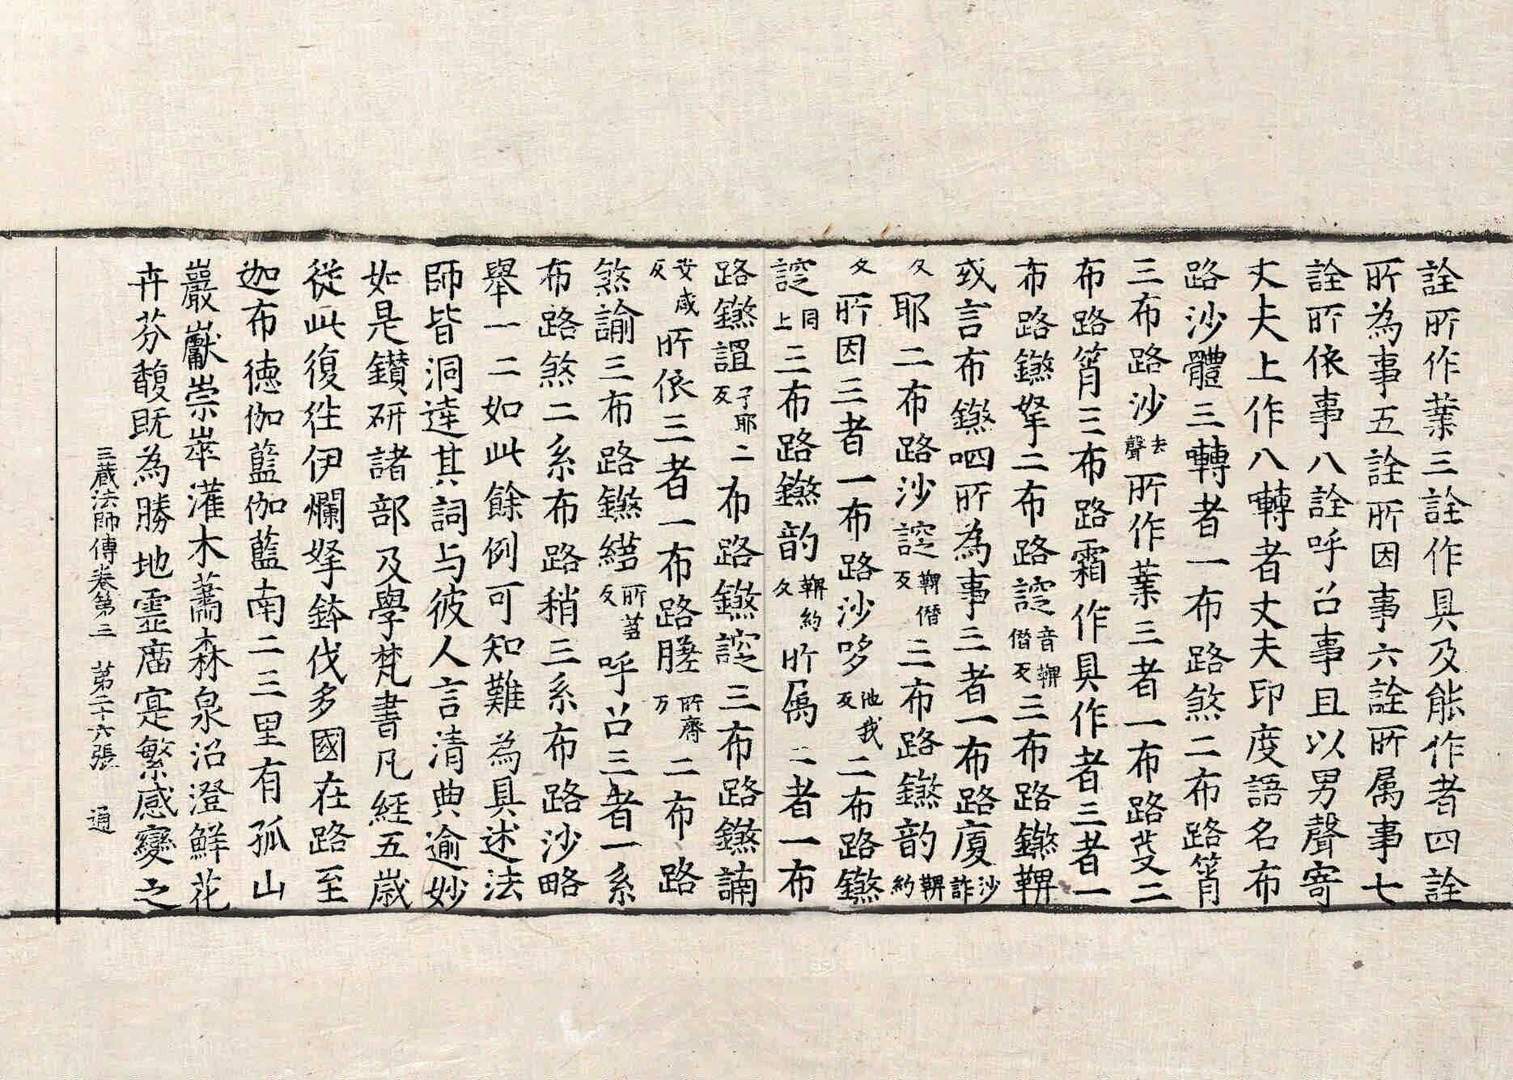 詮所作業三詮作具及能作者四詮
所為事五詮所因事六詮所属事七
詮所依事八詮呼召事且以男聲寄
丈夫上作八囀者丈夫印度語名布
路沙體三囀者一布路煞二布路筲
三布路沙去聲所作業三者一布路芟二
布路筲三布路霜作具作者三者一
布路鏾拏二布路諚音鞞僭反三布路鏾鞞
或言布路鏾呬所為事三者一布路廈沙詐
反耶二布路沙諚鞞僭反三布路鏾韵鞞約
反所因三者一布路沙哆他我反二布路鏾
諚同上三布路鏾韵鞞約反所属三者一布
路鏾誼子耶反二布路鏾諚三布路鏾諵
安咸反所依三者一布路䐤所齊万二布路
煞諭三布路鏾縒所芻反呼召三者一系
布路煞二系布路稍三系布路沙略
舉一二如此餘例可知難為具述法
師皆洞達其詞与彼人言清典逾妙
如是鑚研諸部及學梵書凡經五歳
従此復往伊爛拏鉢伐多國在路至
迦布徳伽藍伽藍南二三里有孤山
巖巘崇崒灌木蕭森泉沼澄鮮花
卉芬馥既為勝地霊庿寔繁感變之
三蔵法師傳卷第三 第二十六張 通